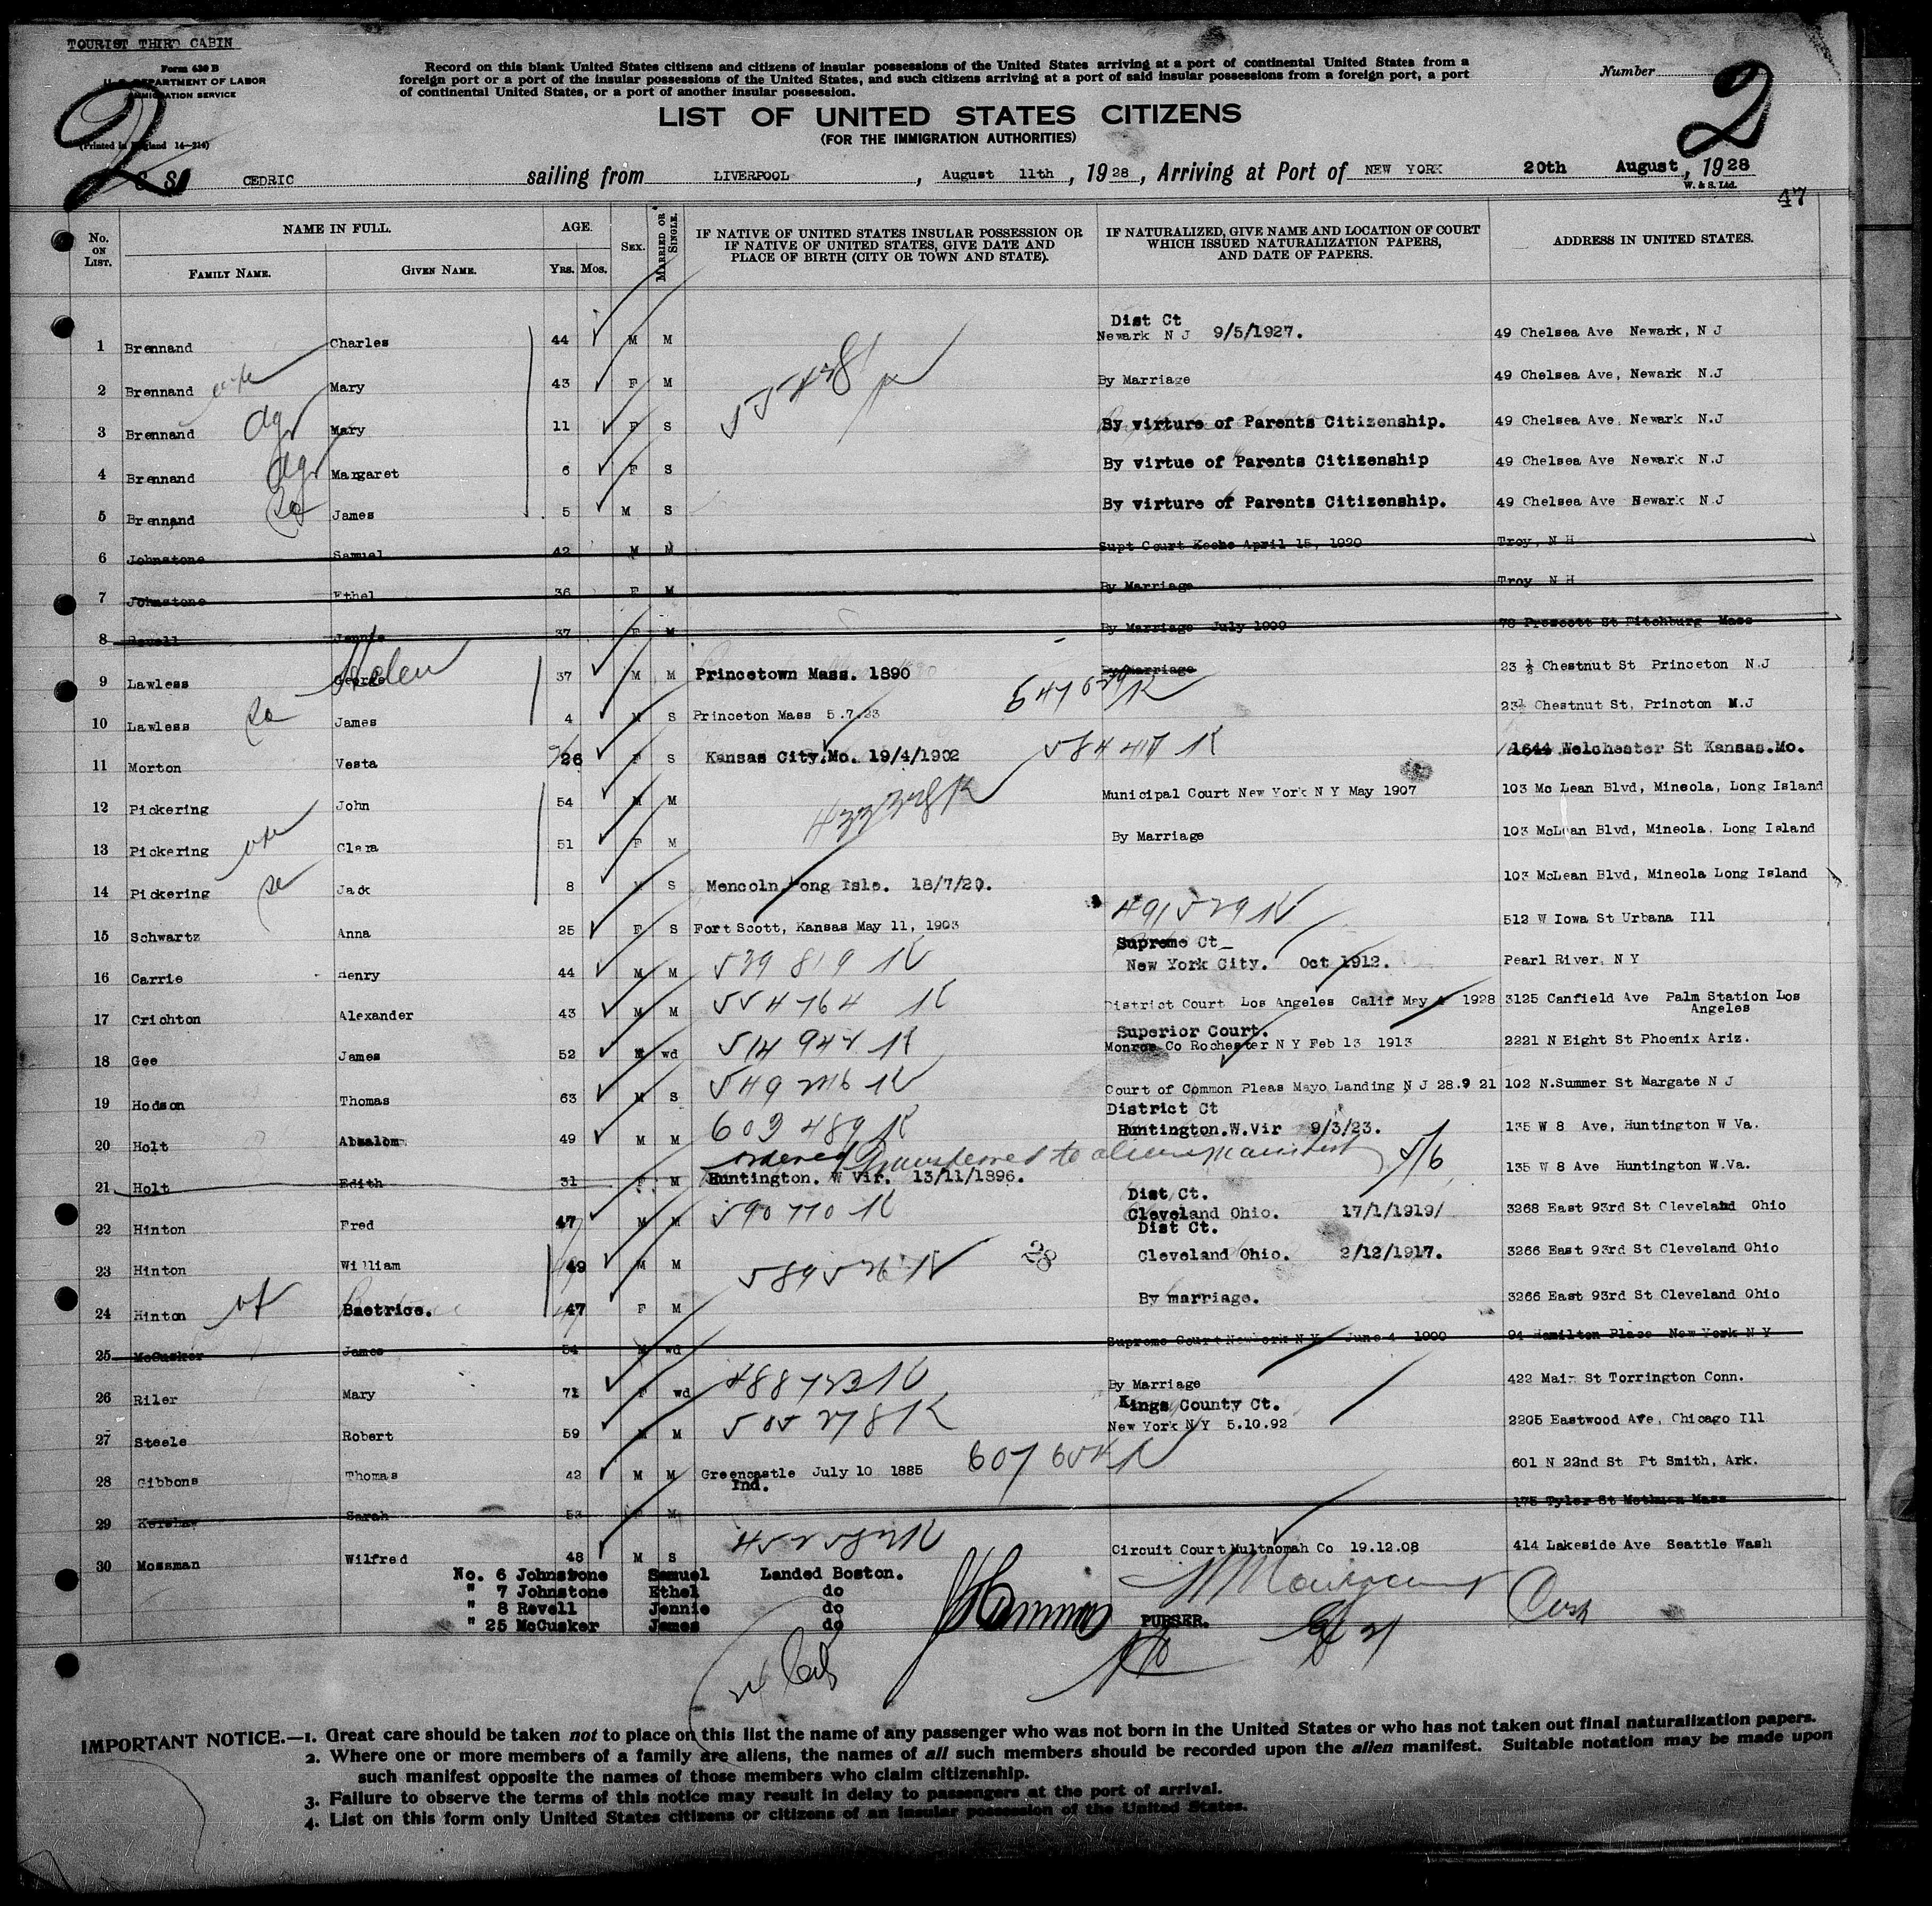 TOURIST THIRD CABIN
Form 630 B
U. S. DEPARTMENT OF LABOR
IMMIGRATION SERVICE
(Printed in England 14—214)
2
Record on this blank United States citizens and citizens of insular possessions of the United States arriving at a port of continental United States from a
foreign port or a port of the insular possessions of the United States, and such citizens arriving at a port of said insular possessions from a foreign port, a port
of continental United States, or a port of another insular possession.
Number
2
LIST OF UNITED STATES CITIZENS
(FOR THE IMMIGRATION AUTHORITIES)
S S CEDRIC sailing from LIVERPOOL, August 11th, 1928, Arriving at Port of NEW YORK 20th August, 1928
W. & S. Ltd.
47
No. ON LIST. NAME IN FULL. FAMILY NAME. GIVEN NAME. AGE. YRS. MOS. SEX. MARRIED OR SINGLE. IF NATIVE OF UNITED STATES INSULAR POSSESSION OR IF NATIVE OF UNITED STATES, GIVE DATE AND PLACE OF BIRTH (CITY OR TOWN AND STATE). IF NATURALIZED, GIVE NAME AND LOCATION OF COURT WHICH ISSUED NATURALIZATION PAPERS, AND DATE OF PAPERS. ADDRESS IN UNITED STATES.
1 Brennand Charles 44 M M Dist Ct Newark N J 9/5/1927. 49 Chelsea Ave Newark, N J
2 Brennand Mary 43 F M By Marriage 49 Chelsea Ave, Newark N.J
3 Brennand Mary 11 F S By virture of Parents Citizenship. 49 Chelsea Ave, Newark N.J
4 Brennand Margaret 6 F S By virtue of Parents Citizenship 49 Chelsea Ave Newark N.J
5 Brennand James 5 M S By virture of Parents Citizenship. 49 Chelsea Ave Newark N J
6 Johnstone Samuel 42 M M Supt Court Keene April 15, 1920 Troy, N H
7 Johnstone Ethel 36 F M By Marriage Troy N H
8 Revell Jennie 37 F M By Marriage July 1909 78 Prescott St Fitchburg Mass
9 Lawless George Helen 37 M M Princetown Mass. 1890 By Marriage 23 ½ Chestnut St Princeton N.J
10 Lawless James 4 M S Princeton Mass 5.7.23 23½ Chestnut St, Princton N.J
11 Morton Vesta 26 F S Kansas City.Mo. 19/4/1902 584417 K 1644 Welchester St Kansas.Mo.
12 Pickering John 54 M M Municipal Court New York N Y May 1907 103 Mc Lean Blvd, Mineola, Long Island
13 Pickering Clara 51 F M By Marriage 103 McLean Blvd, Mineola, Long Island
14 Pickering Jack 8 M S Mencoln Long Isle. 18/7/20. 103 McLean Blvd, Mineola Long Island
15 Schwartz Anna 25 F S Fort Scott, Kansas May 11, 1903 491529 K 512 W Iowa St Urbana Ill
16 Carrie Henry 44 M M 539819 K Supreme Ct New York City. Oct 1912. Pearl River, N Y
17 Crichton Alexander 43 M M 554764 K District Court Los Angeles Calif May 4 1928 3125 Canfield Ave Palm Station Los Angeles
18 Gee James 52 M wd Superior Court. Monroe Co Rochester N Y Feb 13 1913 2221 N Eight St Phoenix Ariz.
19 Hodson Thomas 63 M S Court of Common Pleas Mayo Landing N J 28.9 21 102 N.Summer St Margate N J
20 Holt Absalom 49 M M 603489 K District Ct Huntington.W.Vir 9/3/23. 135 W 8 Ave, Huntington W Va.
ordered Transferred to alien manifest 5/6
21 Holt Edith 31 F M Huntington. W Vir. 13/11/1896. 135 W 8 Ave Huntington W.Va.
22 Hinton Fred 47 M M 590770 K Dist Ct. Cleveland Ohio. 17/1/1919/ 3268 East 93rd St Cleveland Ohio
23 Hinton William 49 M M 589526 K 28 Dist Ct. Cleveland Ohio. 2/12/1917. 3266 East 93rd St Cleveland Ohio
24 Hinton Baetrice. 47 F M By marriage. 3266 East 93rd St Cleveland Ohio
25 McCusker James 54 M wd Supreme Court New York N Y June 4 1900 94 Hamilton Place New York N Y
26 Riler Mary 71 F wd 488723 K By Marriage 422 Main St Torrington Conn.
27 Steele Robert 59 M M 505278 K Kings County Ct. New York N Y 5.10.92 2205 Eastwood Ave, Chicago Ill
28 Gibbons Thomas 42 M M Greencastle July 10 1885 Ind. 601 N 22nd St Ft Smith, Ark.
29 Kershaw Sarah 53 F M 175 Tyler St Methuen Mass
30 Mossman Wilfred 48 M S Circuit Court Multnomah Co 19.12.08 414 Lakeside Ave Seattle Wash
No. 6 Johnstone Samuel Landed Boston.
" 7 Johnstone Ethel do
" 8 Revell Jennie do
" 25 McCusker James do
PURSER.
IMPORTANT NOTICE.—1. Great care should be taken not to place on this list the name of any passenger who was not born in the United States or who has not taken out final naturalization papers.
2. Where one or more members of a family are aliens, the names of all such members should be recorded upon the alien manifest. Suitable notation may be made upon
such manifest opposite the names of those members who claim citizenship.
3. Failure to observe the terms of this notice may result in delay to passengers at the port of arrival.
4. List on this form only United States citizens or citizens of an insular possession of the United States.